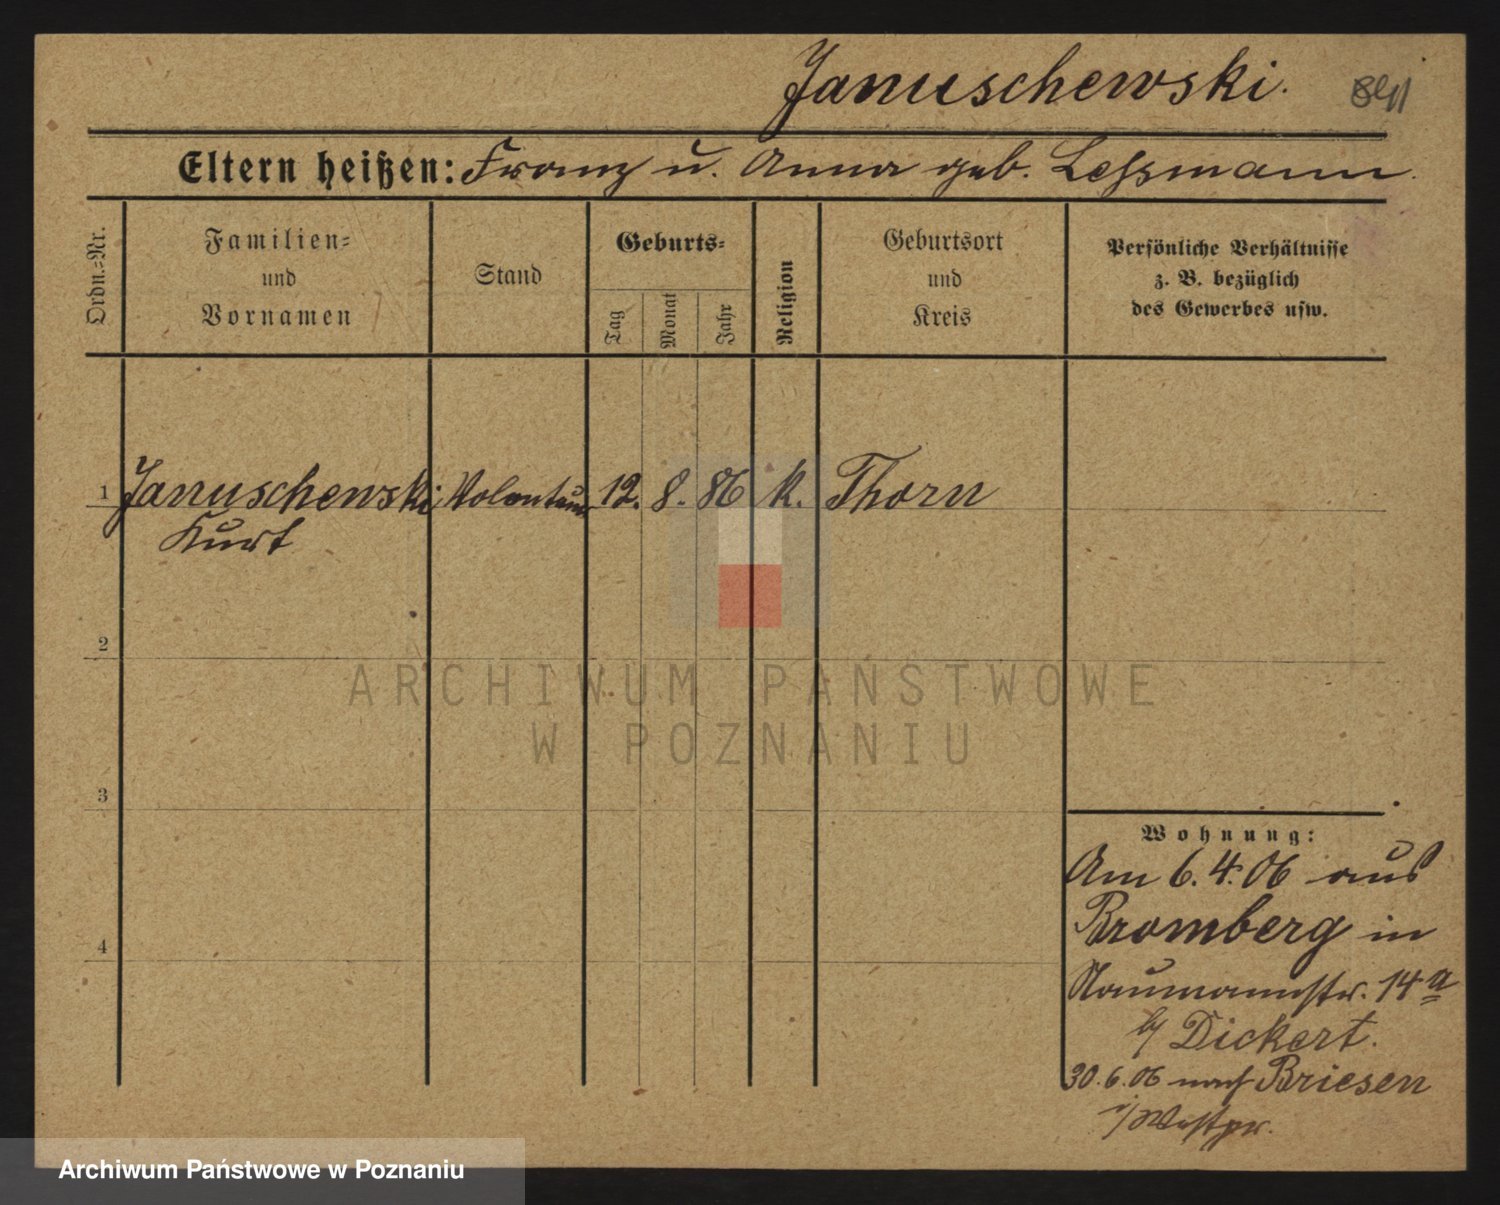 Januschewski.
Eltern heißen: Franz u. Anna geb. Lessmann.
Ordn.-Nr.
Familien-
und
Vornamen
Stand
Geburts-
Tag
Monat
Jahr
Religion
Geburtsort
und
Kreis
Persönliche Verhältnisse
z. B. bezüglich
des Gewerbes usw.
1 Januschewski Volontair 12. 8. 86 k. Thorn
Kurt
2
3
4
Wohnung:
Am 6.4.06 aus
Bromberg in
Naumannstr. 14a
b/ Dickert.
30.6.06 nach Briesen
i/Westpr.
ARCHIWUM PAŃSTWOWE
W POZNANIU
Archiwum Państwowe w Poznaniu